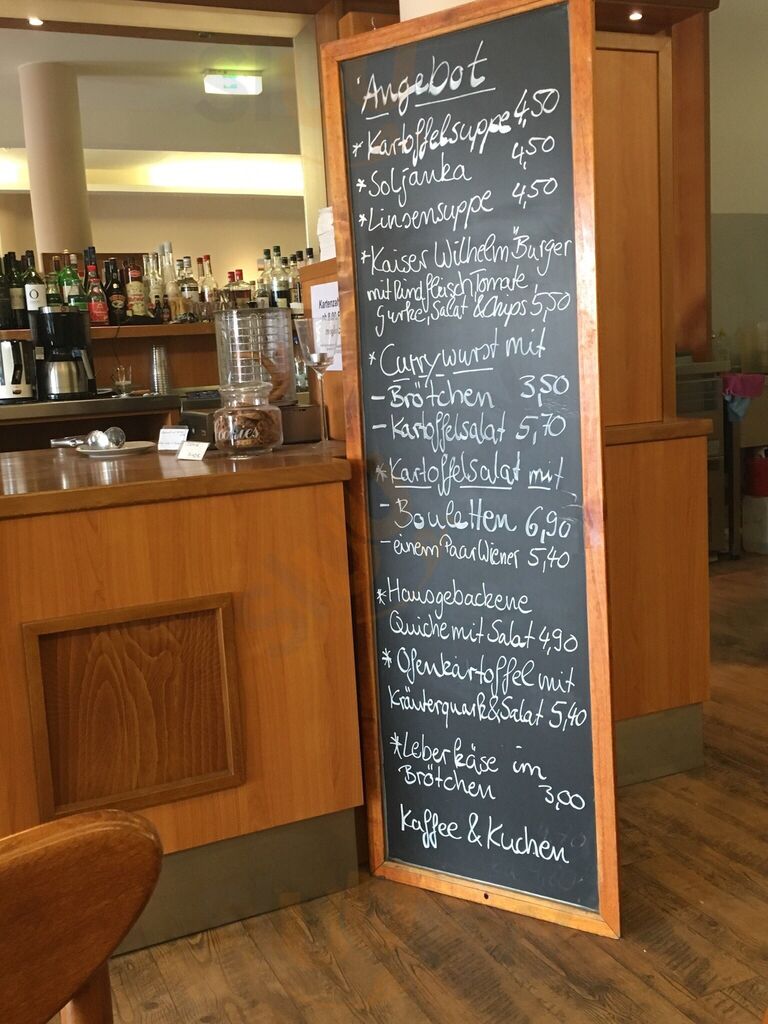 Angebot
* Kartoffelsuppe 4,50
* Soljanka 4,50
* Linsensuppe 4,50
* Kaiser Wilhelm Burger
mit Rindfleisch, Tomate
Gurke, Salat & Chips 5,50
* Currywurst mit
- Brötchen 3,50
- Kartoffelsalat 5,70
* Kartoffelsalat mit
- Bouletten 6,90
- einem Paar Wiener 5,40
* Hausgebackene
Quiche mit Salat 4,90
* Ofenkartoffel mit
Kräuterquark & Salat 5,40
* Leberkäse im
Brötchen 3,00
Kaffee & Kuchen